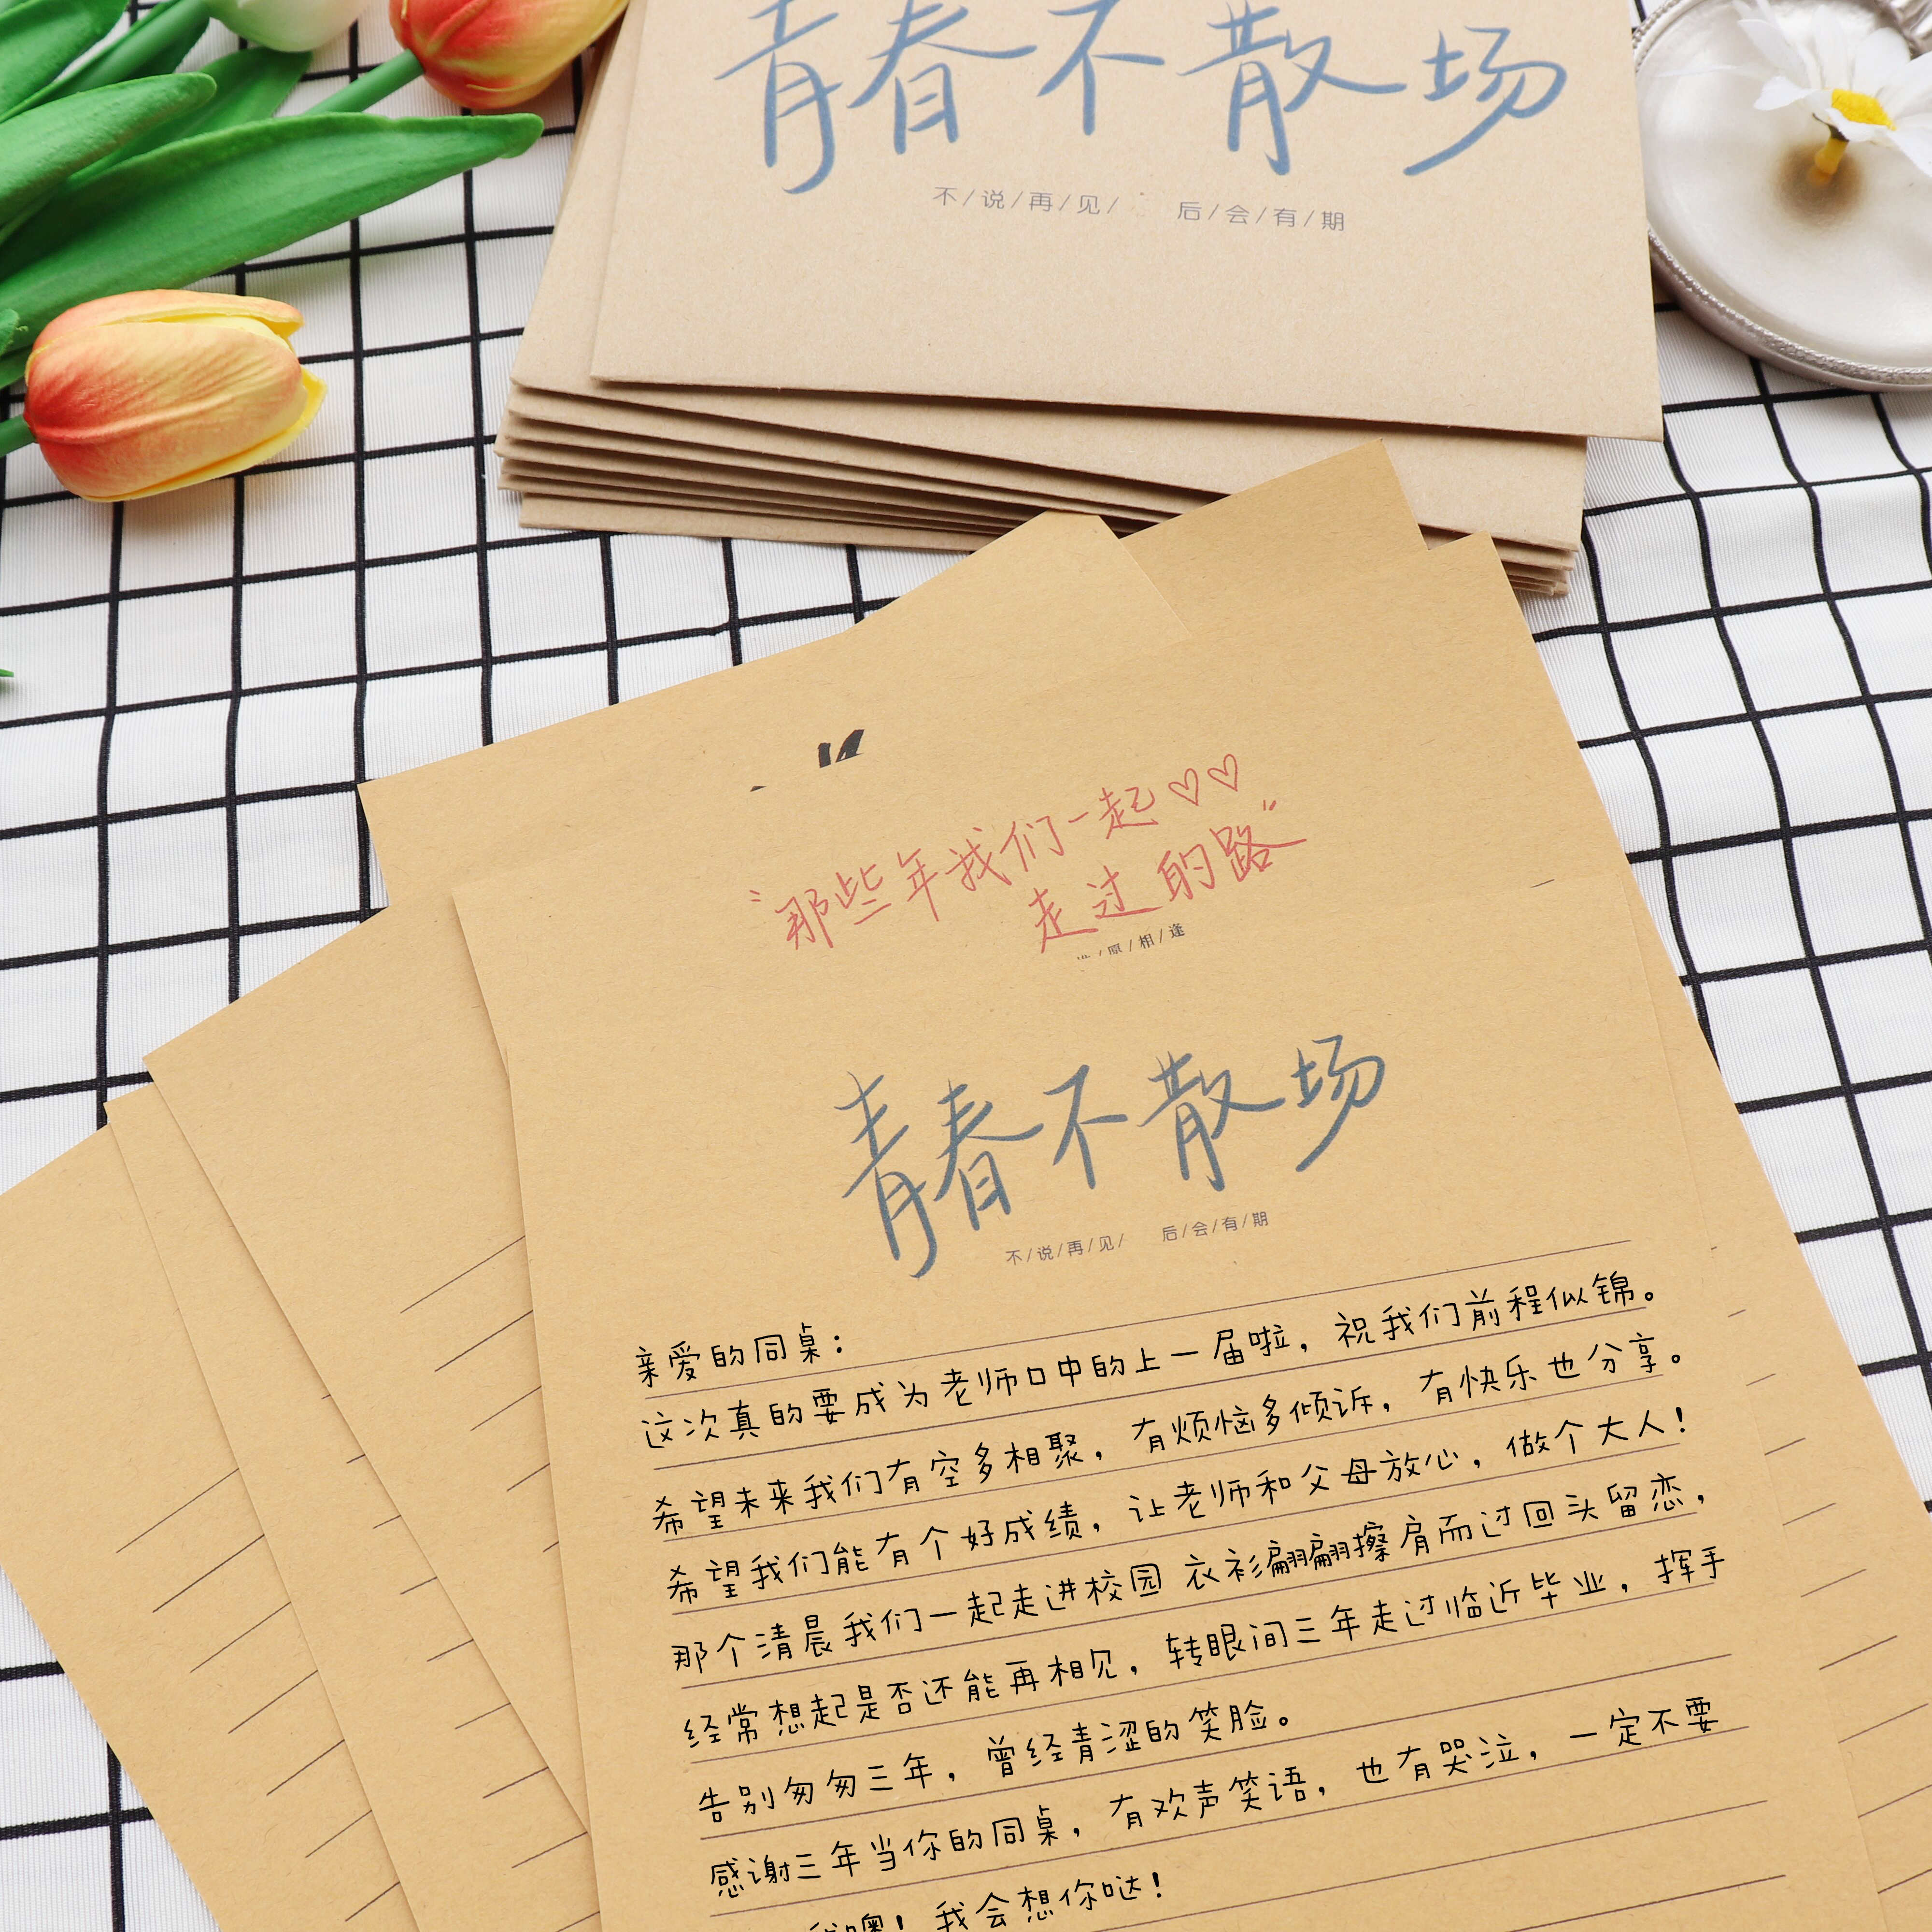 青春不散场
不/说/再/见/ 后/会/有/期
"那些年我们一起♡♡
走过的路"
/愿/相/逢
青春不散场
不/说/再/见/ 后/会/有/期
亲爱的同桌：
这次真的要成为老师口中的上一届啦，祝我们前程似锦。
希望未来我们有空多相聚，有烦恼多倾诉，有快乐也分享。
希望我们能有个好成绩，让老师和父母放心，做个大人！
那个清晨我们一起走进校园 衣衫翩翩擦肩而过回头留恋，
经常想起是否还能再相见，转眼间三年走过临近毕业，挥手
告别匆匆三年，曾经青涩的笑脸。
感谢三年当你的同桌，有欢声笑语，也有哭泣，一定不要
我噢！我会想你哒！